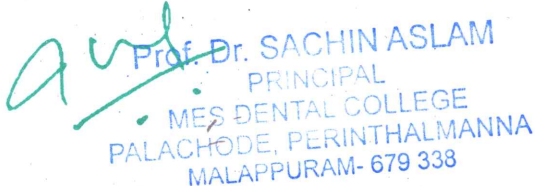 Prof. Dr. SACHIN ASLAM
PRINCIPAL
MES DENTAL COLLEGE
PALACHODE, PERINTHALMANNA
MALAPPURAM- 679 338